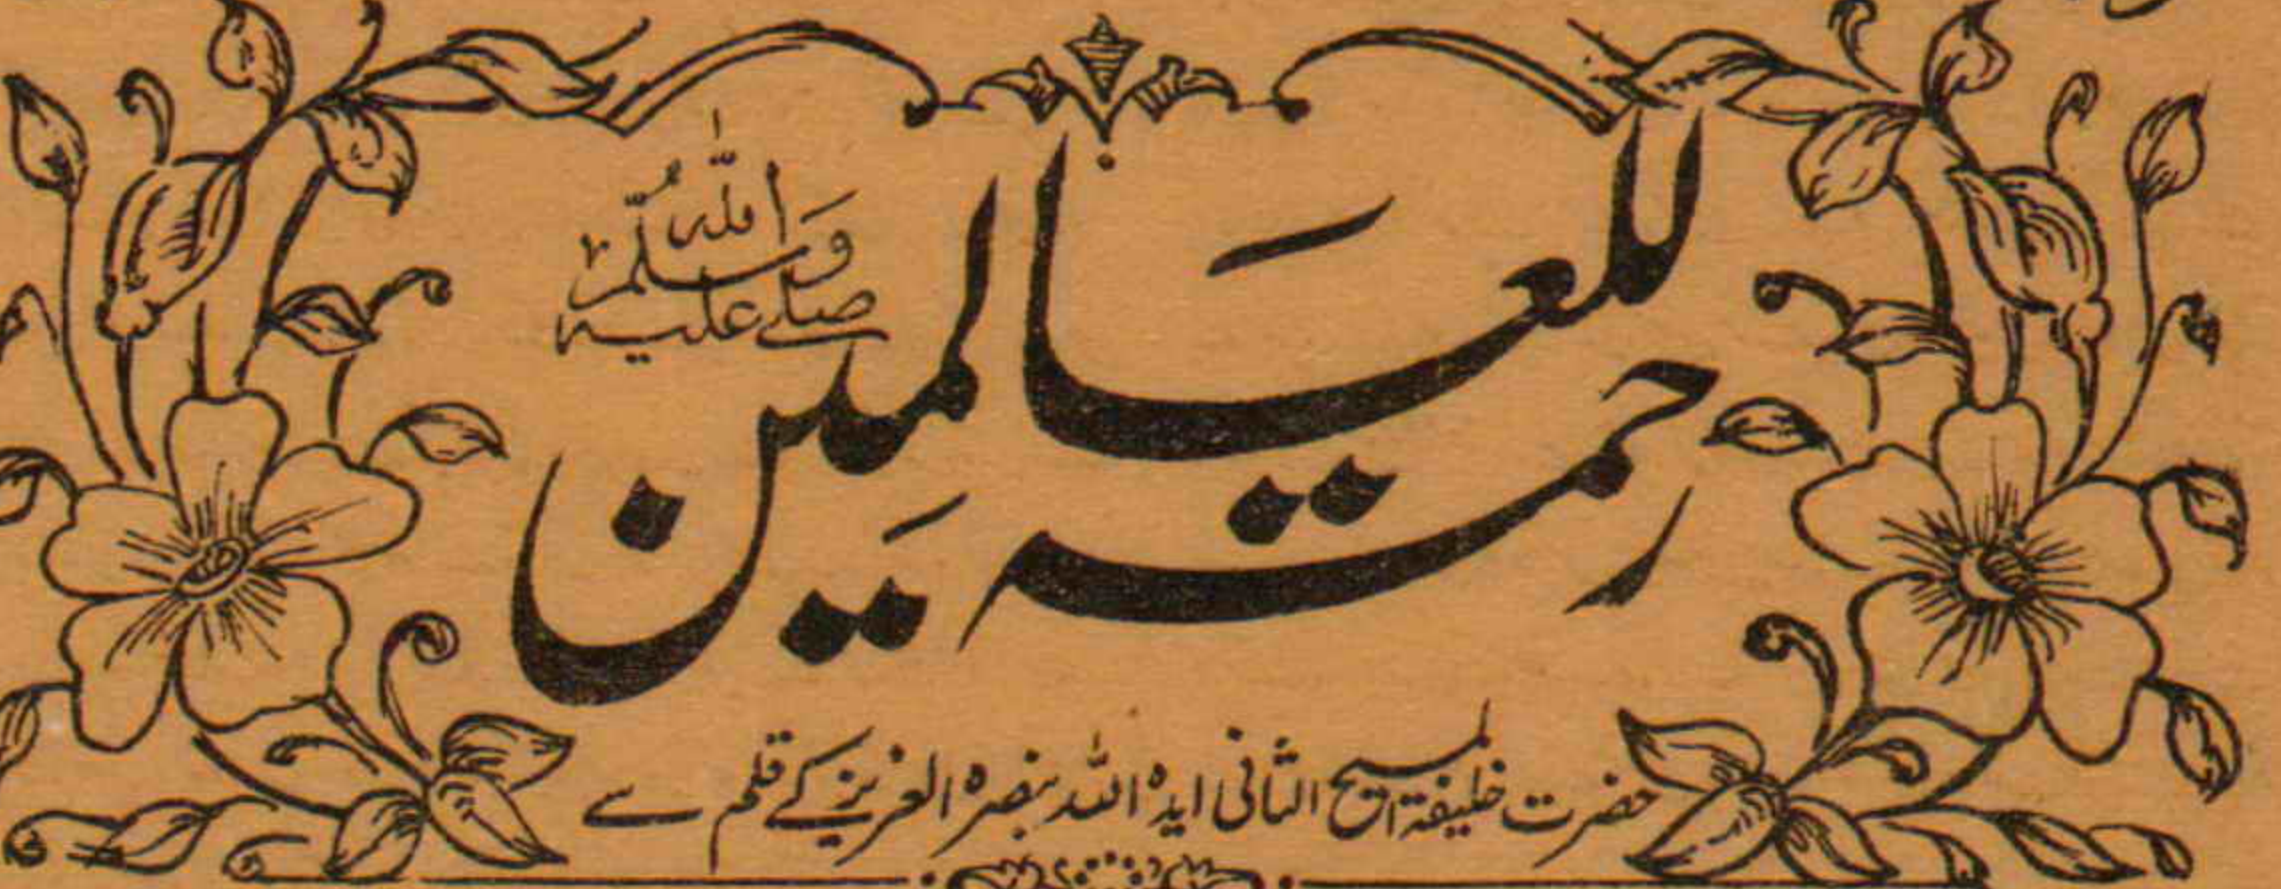 رحمتہ للعالمین
صلے اللہ علیہ وسلم
حضرت خلیفۃ المسیح الثانی ایدہ اللہ بنصرہ العزیز کے قلم سے